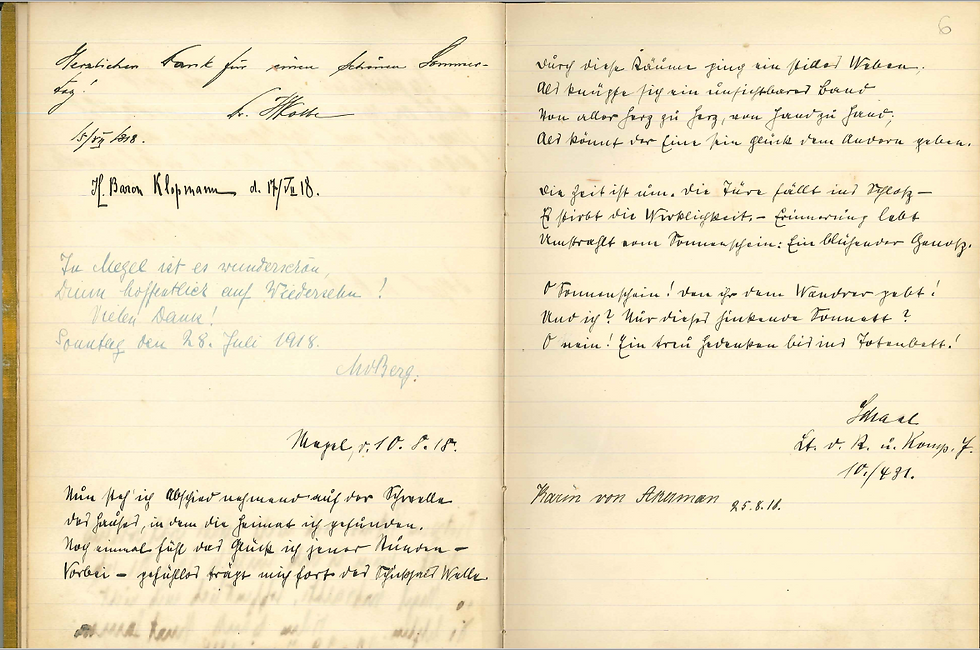 Herzlichen Dank für einen schönen Sommer-
tag!
15/VII 1918.
H. Baron Klopmann d. 17/VII 18.
In Megel ist es wunderschön,
Drum hoffentlich auf Wiedersehn!
Vielen Dank!
Sonntag den 28. Juli 1918.
MvBerg.
Megel, d. 10. 8. 18.
Nun steh' ich Abschied nehmend auf der Schwelle
des Hauses, in dem die Heimat ich gefunden.
Noch einmal fühl das Glück ich jener Stunden –
Vorbei – gefühllos trägt mich fort des Schicksals Welle.
6
Durch diese Räume ging ein stilles Weben,
Als knüpfe sich ein unsichtbares Band
Von aller Herz zu Herz, von Hand zu Hand;
Als könnt der Eine sein Glück dem Andern geben.
Die Zeit ist um. Die Türe fällt ins Schloß –
Es stirbt die Wirklichkeit. – Erinnerung lebt
Umstrahlt vom Sonnenschein: Ein blühender Genoß.
O Sonnenschein! den ihr dem Wandrer gebt!
Und ich? Nur dieses hinkende Sonnett?
O nein! Ein treu Gedenken bis ins Totenbett!
Schaal
Lt. d. R. u. Komp. F.
10./431.
Karin von Akerman 25.8.18.